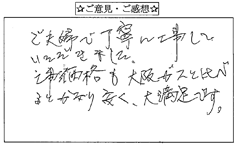 ☆ご意見・ご感想☆
ご夫婦で丁寧に工事して
いただきました。
工事価格も大阪ガスと比べ
るとかなり安く、大満足です。